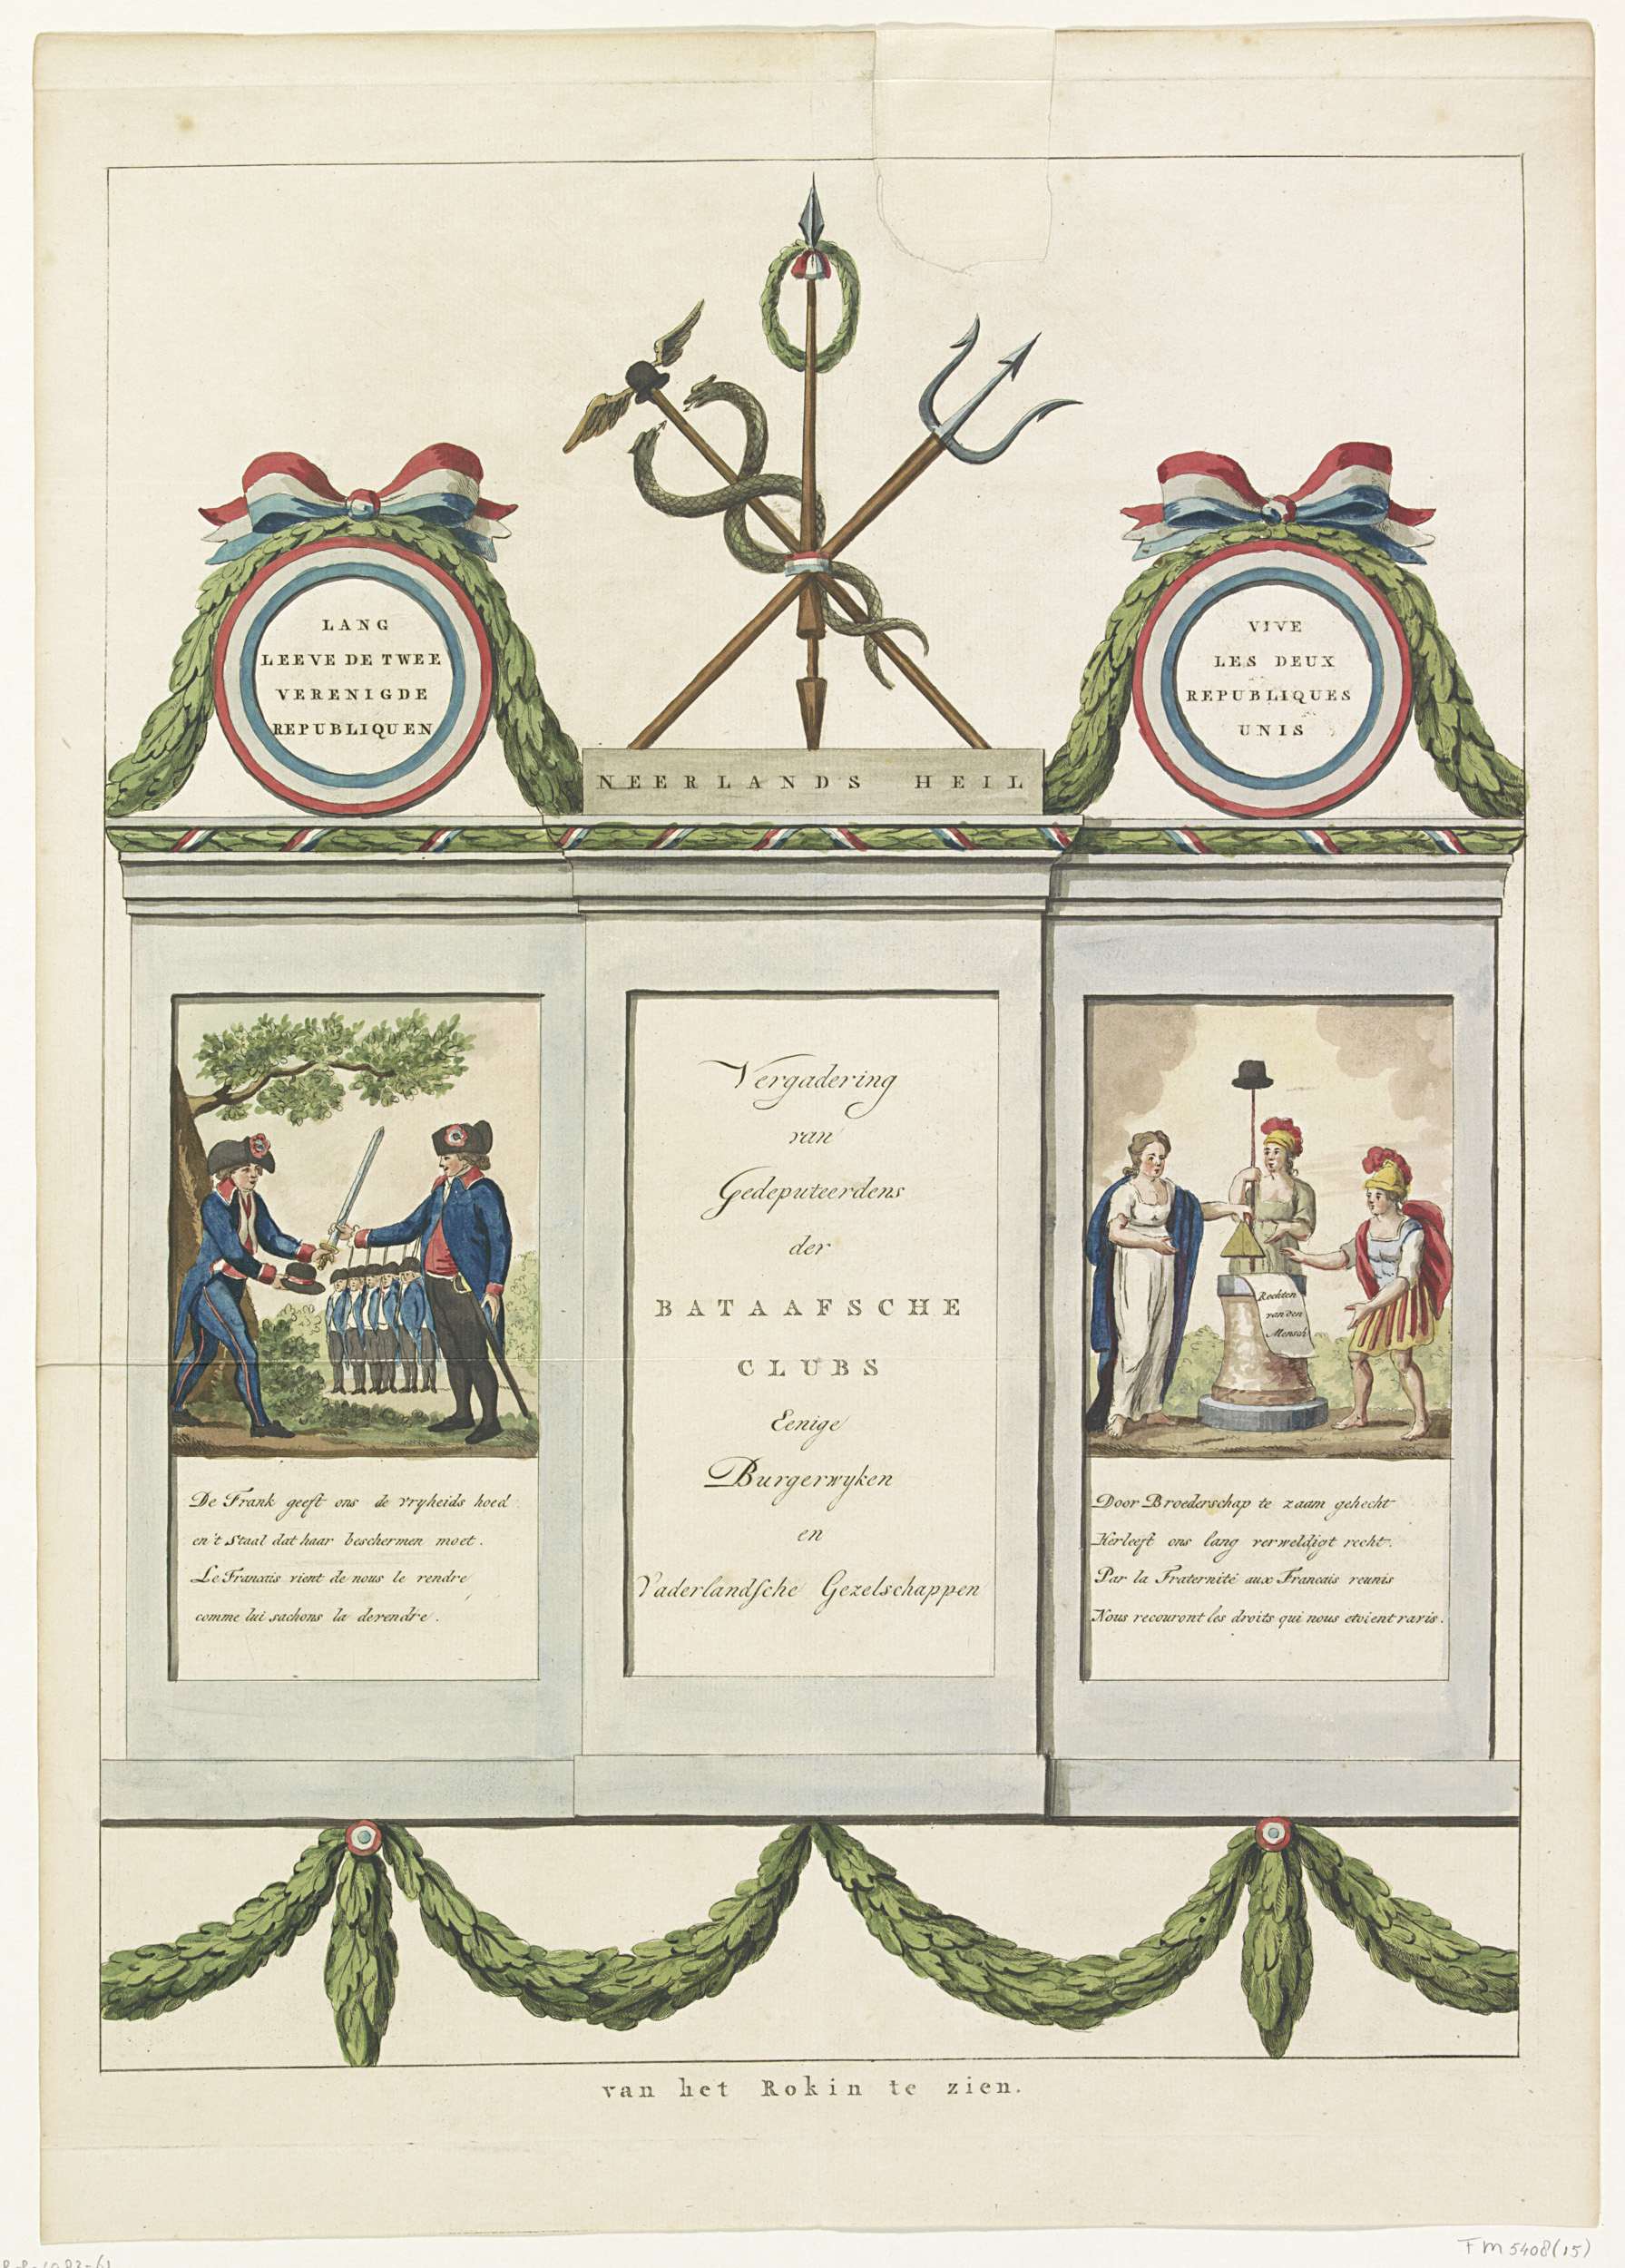 LANG
LEEVE DE TWEE
VERENIGDE
REPUBLIQUEN
VIVE
LES DEUX
REPUBLIQUES
UNIS
NEERLANDS HEIL
De Frank geeft ons de vryheids hoed
en't Staal dat haar beschermen moet.
Le Francais vient de nous le rendre
comme lui sachons la derendre.
Vergadering
van
Gedeputeerdens
der
BATAAFSCHE
CLUBS
Eenige
Burgerwyken
en
Vaderlandsche Gezelschappen
Rechten
van den
Mensch
Door Broederschap te zaam gehecht
Herleeft ons lang verweldigt recht.
Par la Fraternité aux Francais reunis
Nous recouront les droits qui nous etoient ravis.
van het Rokin te zien.
FM 5408(15)